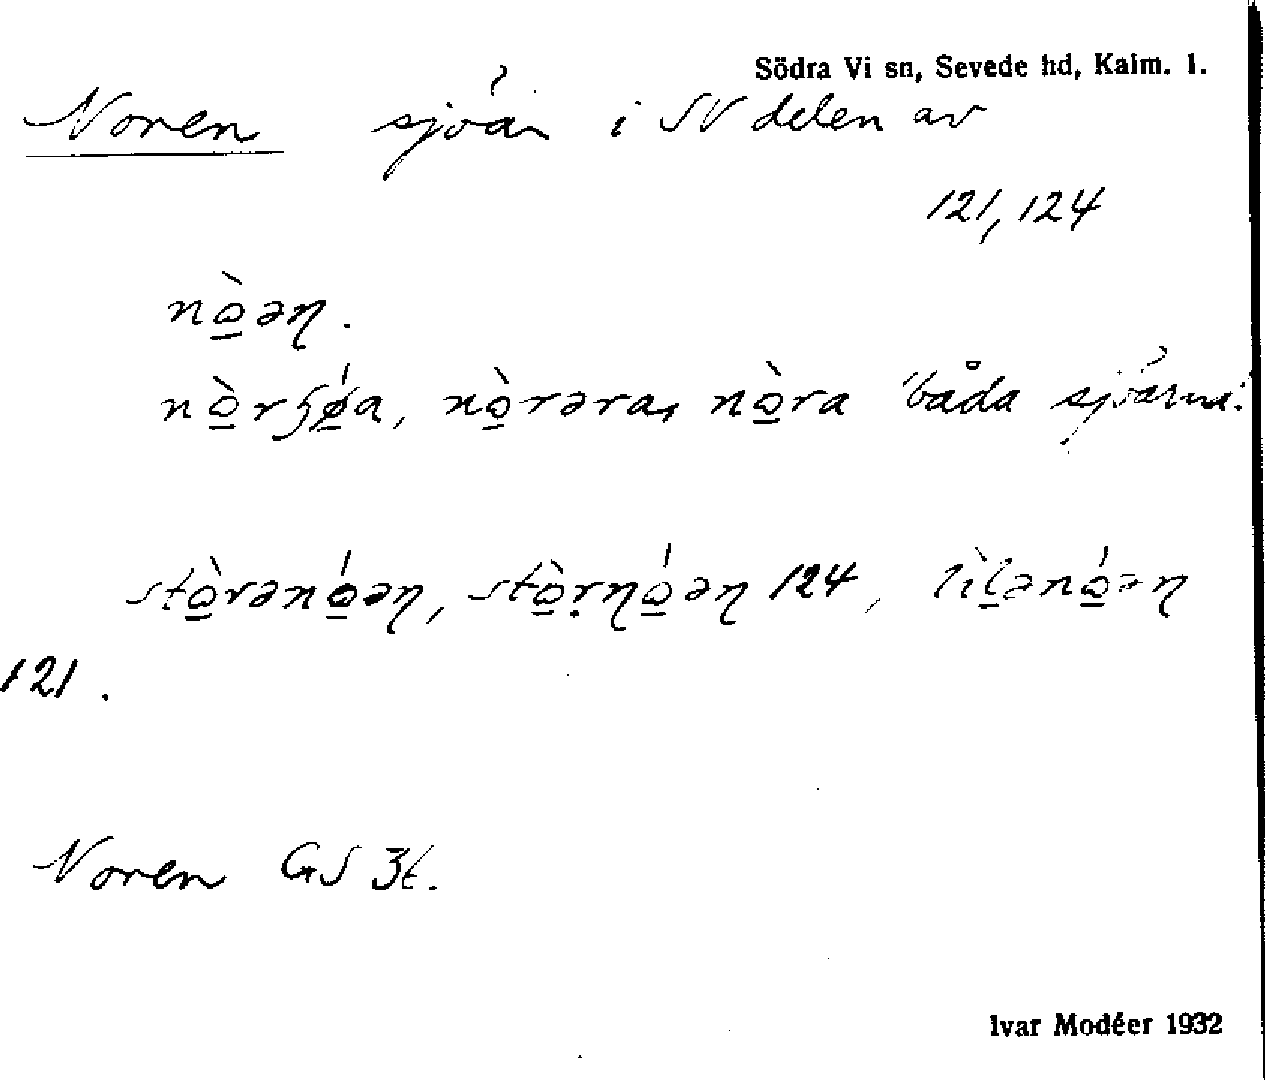 Södra Vi sn, Sevede hd, Kalm. l.
Noren sjöar i SV delen av
121, 124
nò̲əɳ.
nò̲rʃǿ̲a, nò̲rəra, nò̲ra 'båda sjöarna'.
stò̲rənó̲əɳ, stò̲rɳó̲əɳ 124, lìl̲ənó̲əɳ
121.
Noren GS 3t.
Ivar Modéer 1932